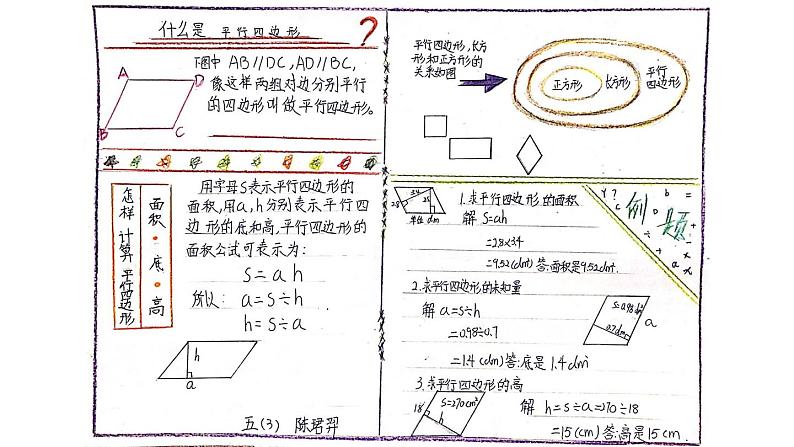 什么是 平行四边形 ?
A D
B C
下图中 AB//DC,AD//BC,
像这样两组对边分别平行
的四边形叫做平行四边形。
平行四边形,长方
形和正方形的
关系如图
正方形 长方形 平行
四边形
怎样计算平行四边形
面积·底·高
用字母S表示平行四边形的
面积,用a,h分别表示平行四
边形的底和高,平行四边形的
面积公式可表示为:
S=ah
所以: a=s÷h
h=s÷a
h
a
五(3) 陈珺羿
例题
3.4
2.8
单位dm
1.求平行四边形的面积
解 S=ah
=2.8×3.4
=9.52(dm)答:面积是9.52dm².
2.求平行四边形的未知量
解 a=s÷h
=0.98÷0.7
=1.4(dm)答:底是1.4dm
S=0.98dm²
0.7dm
a
3.求平行四边形的高
S=270cm²
18
h
解 h=s÷a=270÷18
=15(cm)答:高是15cm.